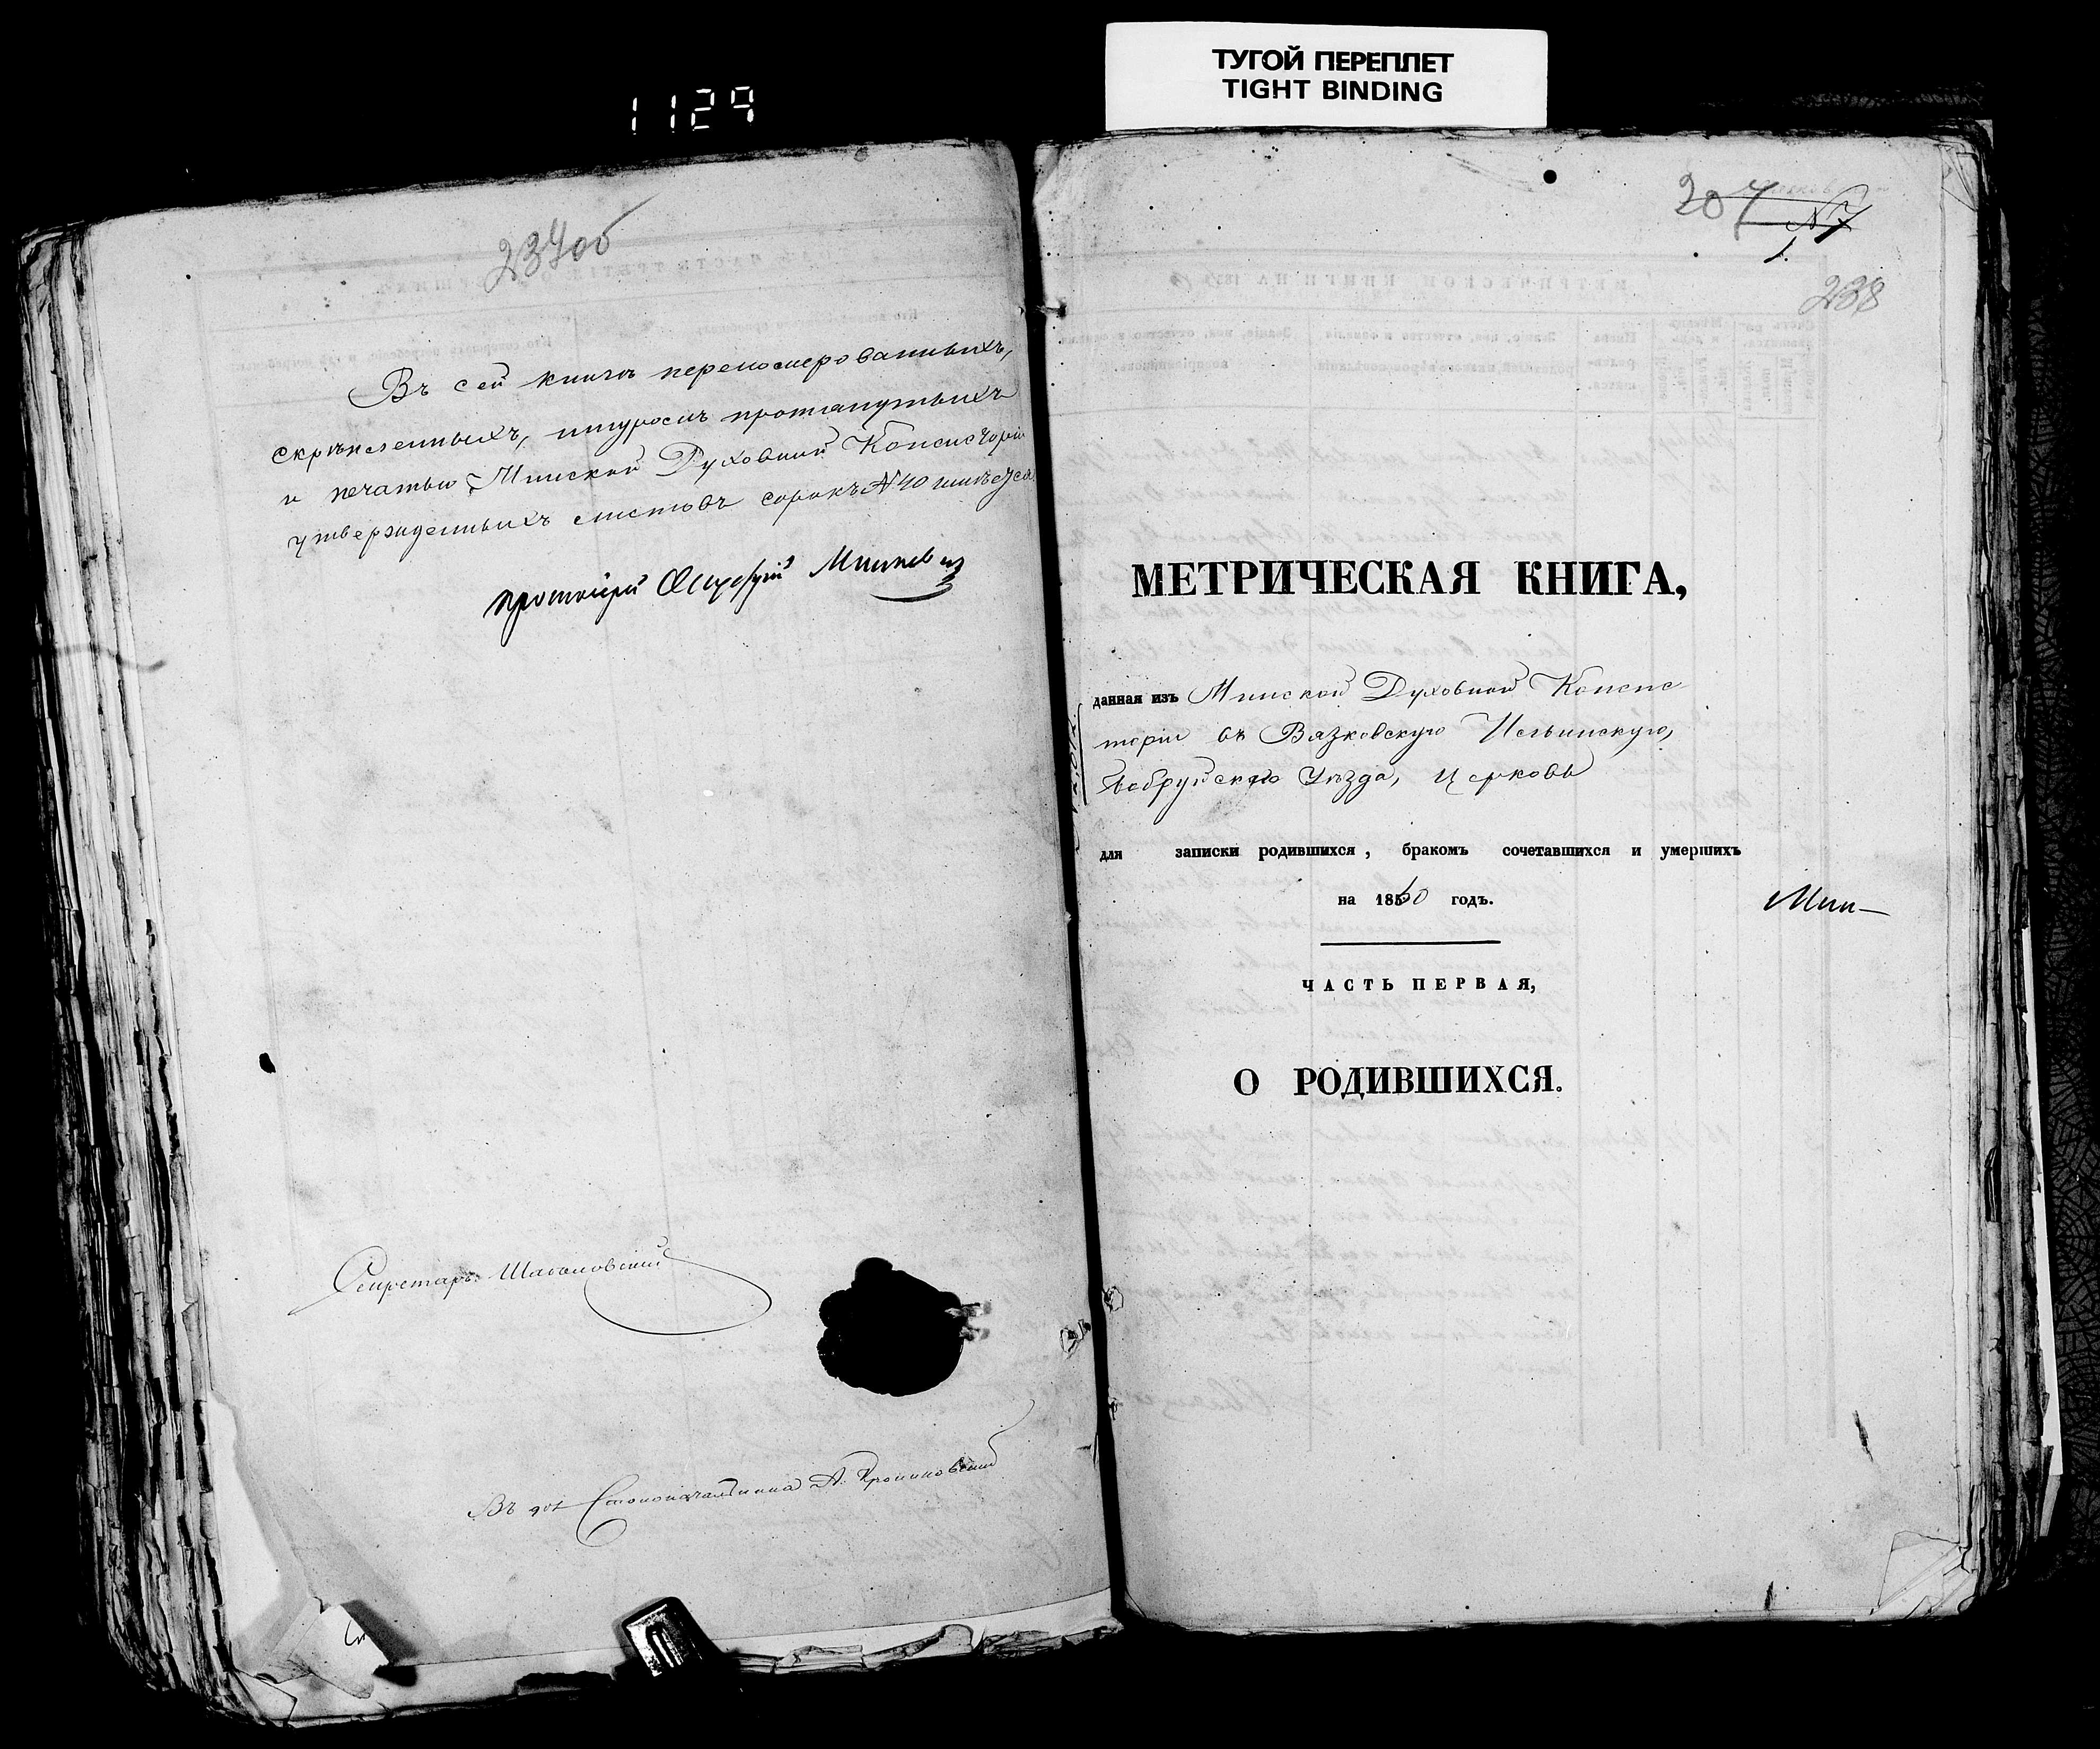 ТУГОЙ ПЕРЕПЛЕТ
TIGHT BINDING
1129
237об
Въ сей книгѣ перономерованныхъ,
скрѣпленныхъ, шнуромъ протянутыхъ
и печатью Минской Духовной Консисторіи
утвержденныхъ листовъ сорокъ № 40
протоіерей Минкевич
Секретарь
Въ дол Столоначальника А.
207
№7
238
МЕТРИЧЕСКАЯ КНИГА,
данная изъ Минской Духовной Консис-
торіи въ Вязковскую Ильинскую,
Бобруйскаго Уѣзда, церковь
для записки родившихся, бракомъ сочетавшихся и умершихъ
на 1860 годъ.
Мин-
ЧАСТЬ ПЕРВАЯ,
О РОДИВШИХСЯ.